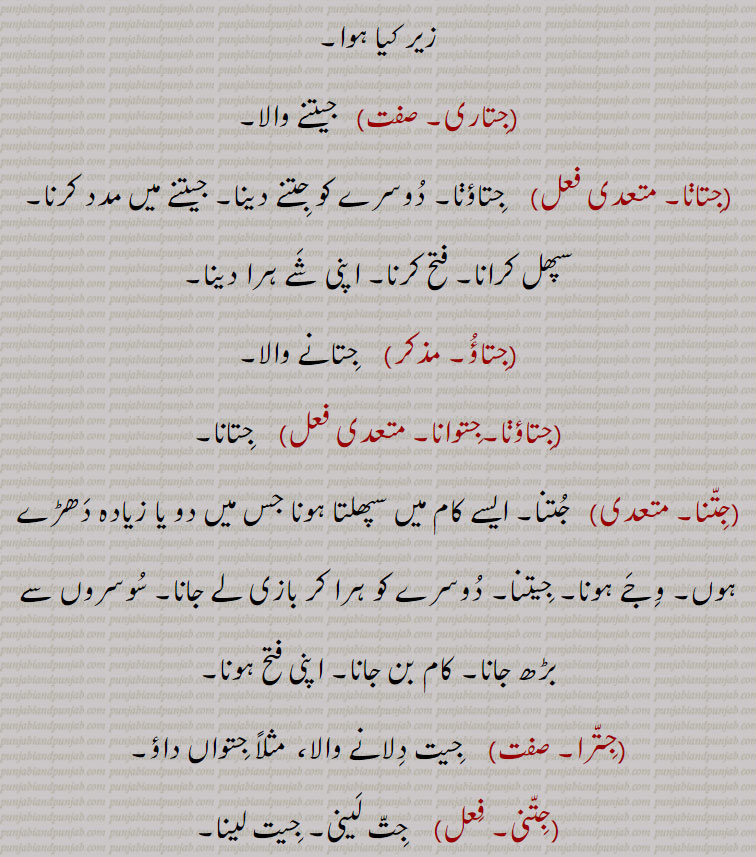 زیر کیا ہوا۔
(جِتاری۔ صفت) جیتنے والا۔
(جِتاݨا۔ متعدی فعل) جِتاؤݨا۔ دُوسرے کو جِتنے دینا۔ جیتنے میں مدد کرنا۔
سپھل کرانا۔ فتح کرنا۔ اپنی شَے ہرا دینا۔
(جِتاؤُ۔ مذکر) جِتانے والا۔
(جِتاؤݨا۔ جِتوانا۔ متعدی فعل) جِتانا۔
(جِتّنا۔ متعدی) جُتنا۔ ایسے کام میں سپھلتا ہونا جس میں دو یا زیادہ دَھڑے
ہوں۔ وِجَے ہونا۔ جِیتنا۔ دُوسرے کو ہرا کر بازی لے جانا۔ سُوسروں سے
بڑھ جانا۔ کام بن جانا۔ اپنی فتح ہونا۔
(جِتّرا۔ صفت) جِیت دِلانے والا، مثلاً جِتواں داؤ۔
(جِتّنی۔ فِعل) جِتّ لَینی۔ جِیت لینا۔